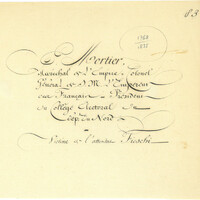 83
1768
1835
Mortier,
Maréchal de l'Empire, Colonel
Général de S. M. l'Empereur
des Français - Président
du Collège Electoral du
Dép. du Nord
Victime de l'attentat Fieschi